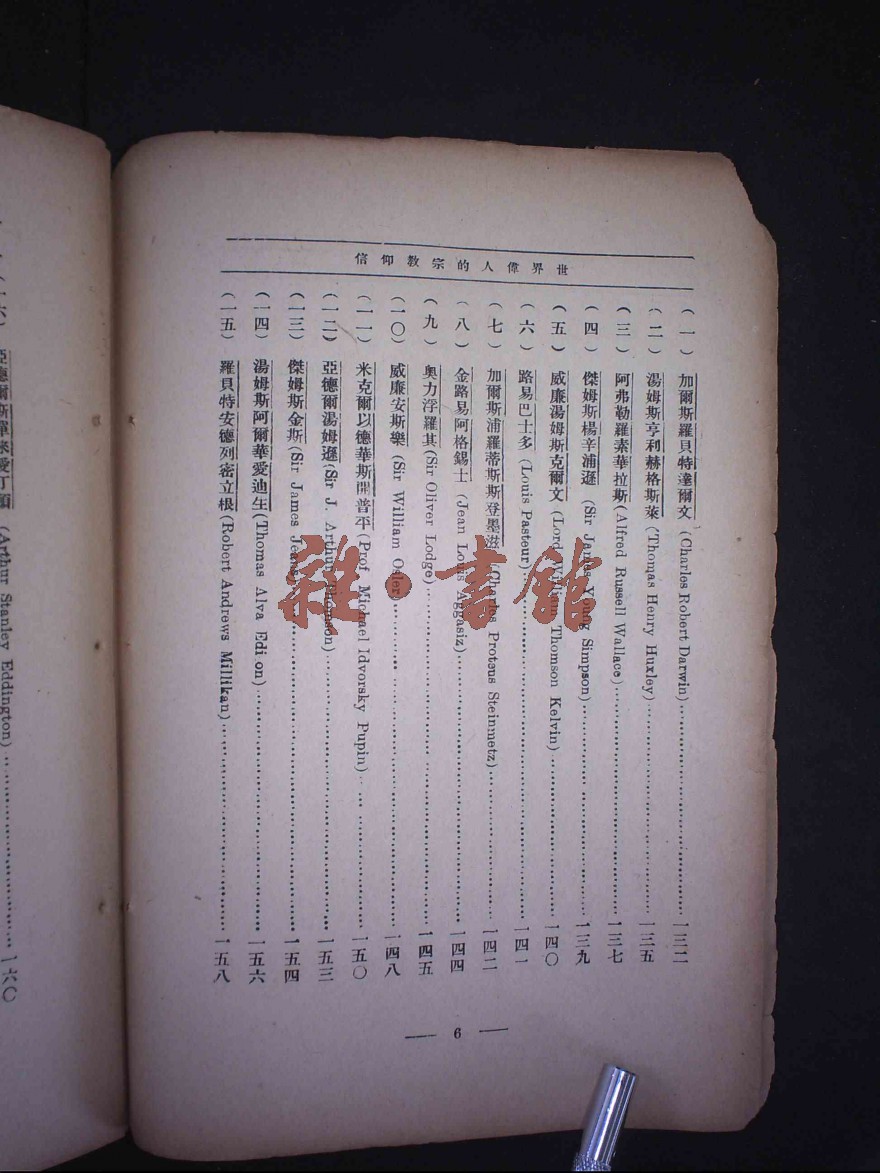 世界偉人的宗教信仰
（一） 加爾斯羅貝特達爾文 (Charles Robert Darwin)……………一三二
（二） 湯姆斯亨利赫格斯萊 (Thomas Henry Huxley)……………一三五
（三） 阿弗勒羅素華拉斯 (Alfred Russell Wallace)……………一三七
（四） 傑姆斯楊辛浦遜 (Sir James Young Simpson)……………一三九
（五） 威廉湯姆斯克爾文 (Lord William Thomson Kelvin)……………一四〇
（六） 路易巴士多 (Louis Pasteur)……………一四一
（七） 加爾斯浦羅蒂斯斯登墨滋 (Charles Protens Steinmetz)……………一四二
（八） 金路易阿格錫士 (Jean Louis Aggasiz)……………一四四
（九） 奧力浮羅其 (Sir Oliver Lodge)……………一四五
（一〇） 威廉安斯樂 (Sir William Osler)……………一四八
（一一） 米克爾以德華斯開普平 (Prof. Michael Idvorsky Pupin)……………一五〇
（一二） 亞德爾湯姆遜 (Sir J. Arthur Thomson)……………一五三
（一三） 傑姆斯金斯 (Sir James Jeans)……………一五四
（一四） 湯姆斯阿爾華愛迪生 (Thomas Alva Edi on)……………一五六
（一五） 羅貝特安德列密立根 (Robert Andrews Millikan)……………一五八
— 6 —
（一六） 亞德爾斯 愛丁頓 (Arthur Stanley Eddington)……………一六〇
雜·書館